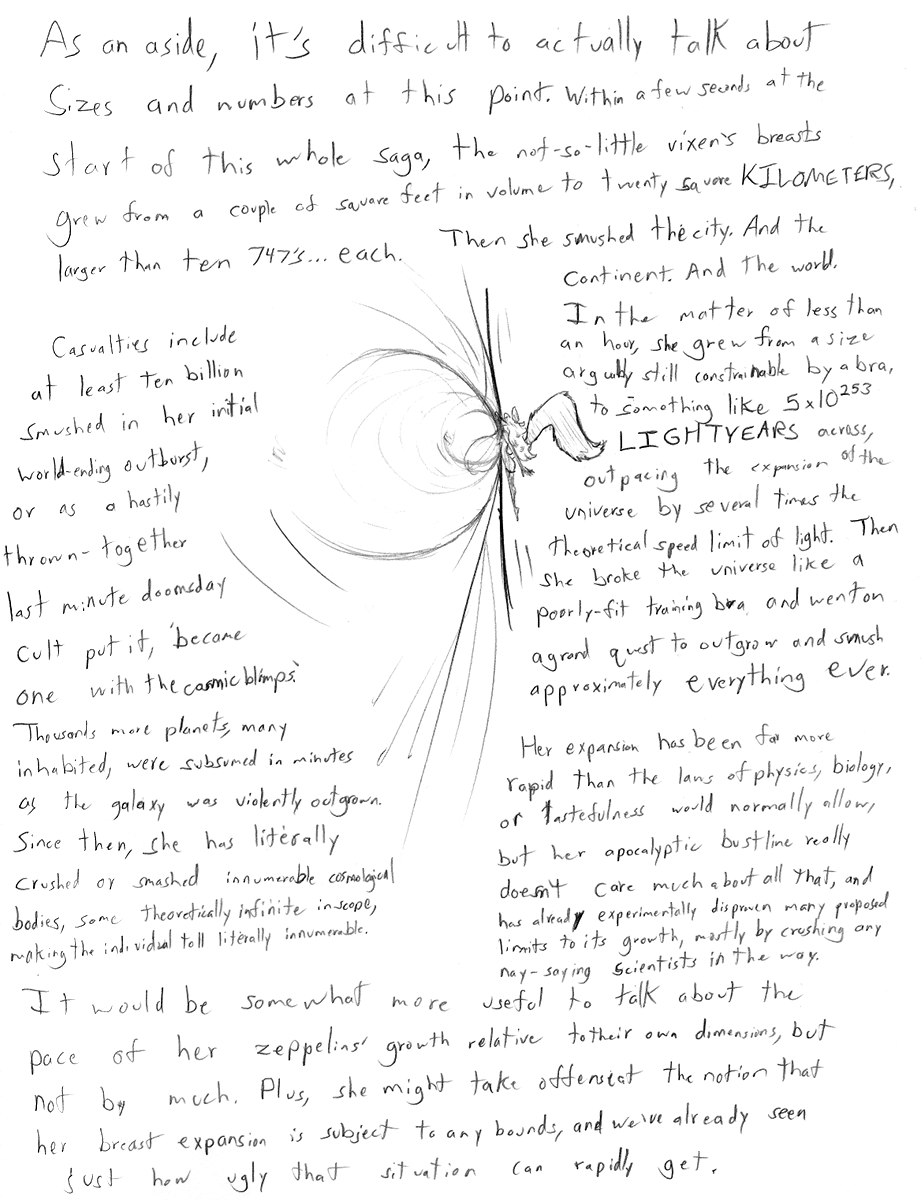 As an aside, it's difficult to actually talk about
Sizes and numbers at this point. Within a few seconds at the
start of this whole saga, the not-so-little vixen's breasts
grew from a couple of square feet in volume to twenty square KILOMETERS,
larger than ten 747's... each.
Then she smushed the city. And the
Continent. And the world.
In the matter of less than
an hour, she grew from a size
arguably still constrainable by a bra,
to something like 5x10^253
LIGHTYEARS across,
outpacing the expansion of the
universe by several times the
theoretical speed limit of light. Then
she broke the universe like a
poorly-fit training bra and went on
a grand quest to outgrow and smush
approximately everything ever.
Casualties include
at least ten billion
smushed in her initial
world-ending outburst,
or as a hastily
thrown-together
last minute doomsday
cult put it, 'become
one with the cosmic blimps.'
Thousands more planets, many
inhabited, were subsumed in minutes
as the galaxy was violently outgrown.
Since then, she has literally
crushed or smashed innumerable cosmological
bodies, some theoretically infinite in scope,
making the individual toll literally innumerable.
Her expansion has been far more
rapid than the laws of physics, biology,
or tastefulness would normally allow,
but her apocalyptic bustline really
doesn't care much about all that, and
has already experimentally disproven many proposed
limits to its growth, mostly by crushing any
nay-saying scientists in the way.
It would be somewhat more useful to talk about the
pace of her zeppelins' growth relative to their own dimensions, but
not by much. Plus, she might take offense at the notion that
her breast expansion is subject to any bounds, and we've already seen
just how ugly that situation can rapidly get.